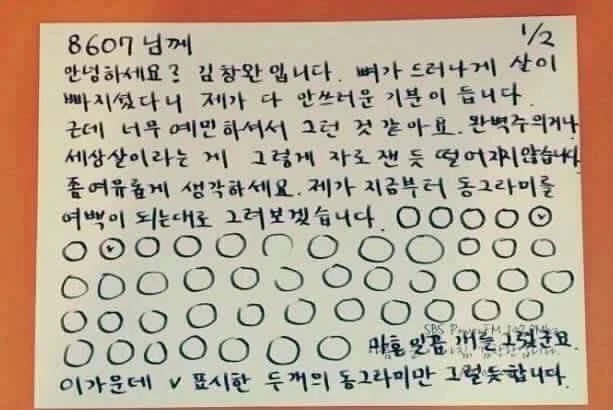 8607님께 1/2
안녕하세요? 김창완입니다. 뼈가 드러나게 살이
빠지셨다니 제가 다 안쓰러운 기분이 듭니다.
근데 너무 예민하셔서 그런 것 같아요. 완벽주의거나
세상살이라는 게 그렇게 자로 잰 듯 떨어지지않습니다.
좀 여유롭게 생각하세요. 제가 지금부터 동그라미를
여백이 되는대로 그려보겠습니다.
SBS PowerFM
마흔 일곱 개를 그렸군요.
이가운데 v 표시한 두개의 동그라미만 그럴듯합니다.